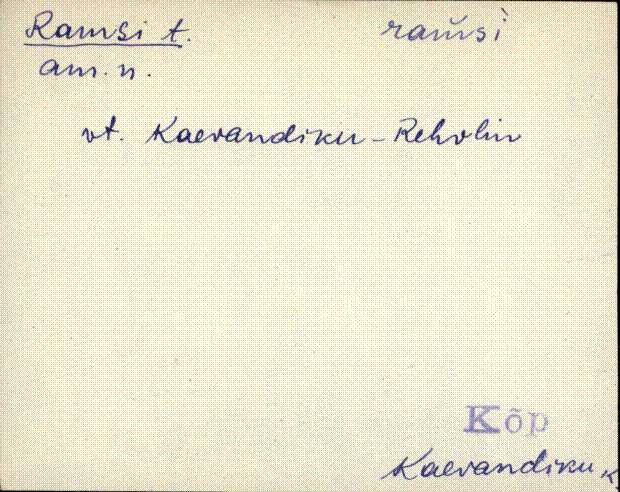 Ramsi t. ram̆si̇̀
am. n.
vt. Kaevandiku-Rehvlin
Kõp
Kaevandiku k